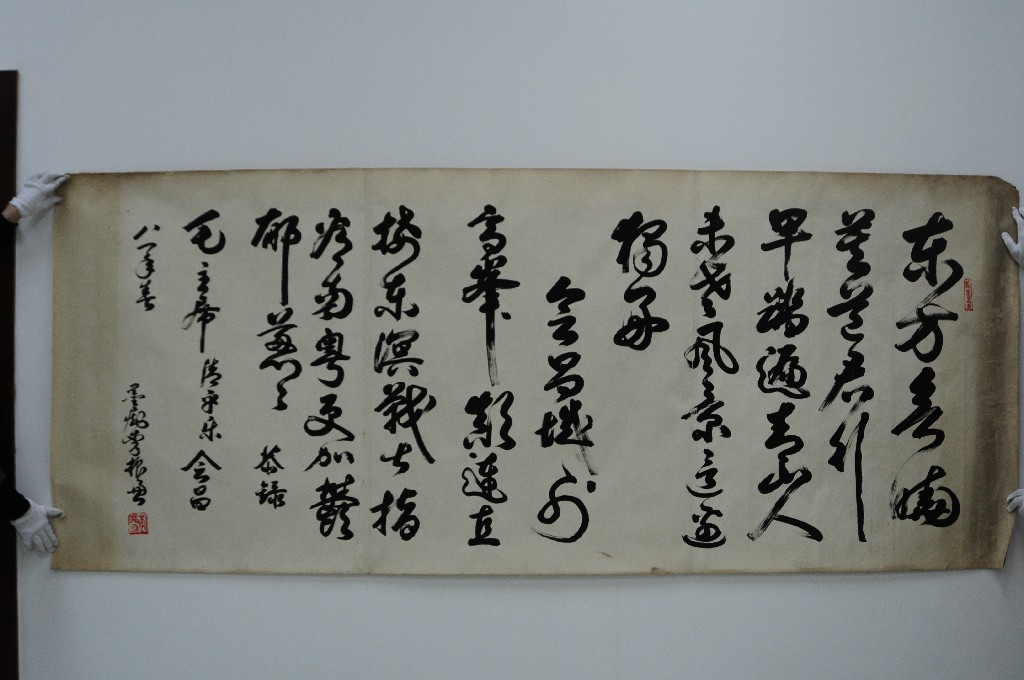 东方欲晓
莫道君行
早踏遍青山人
未老风景这边
独好
会昌城外
高峰颠连直
接东溟战士指
看南粤更加郁
郁葱々
恭录
毛主席清平乐会昌
八一年春